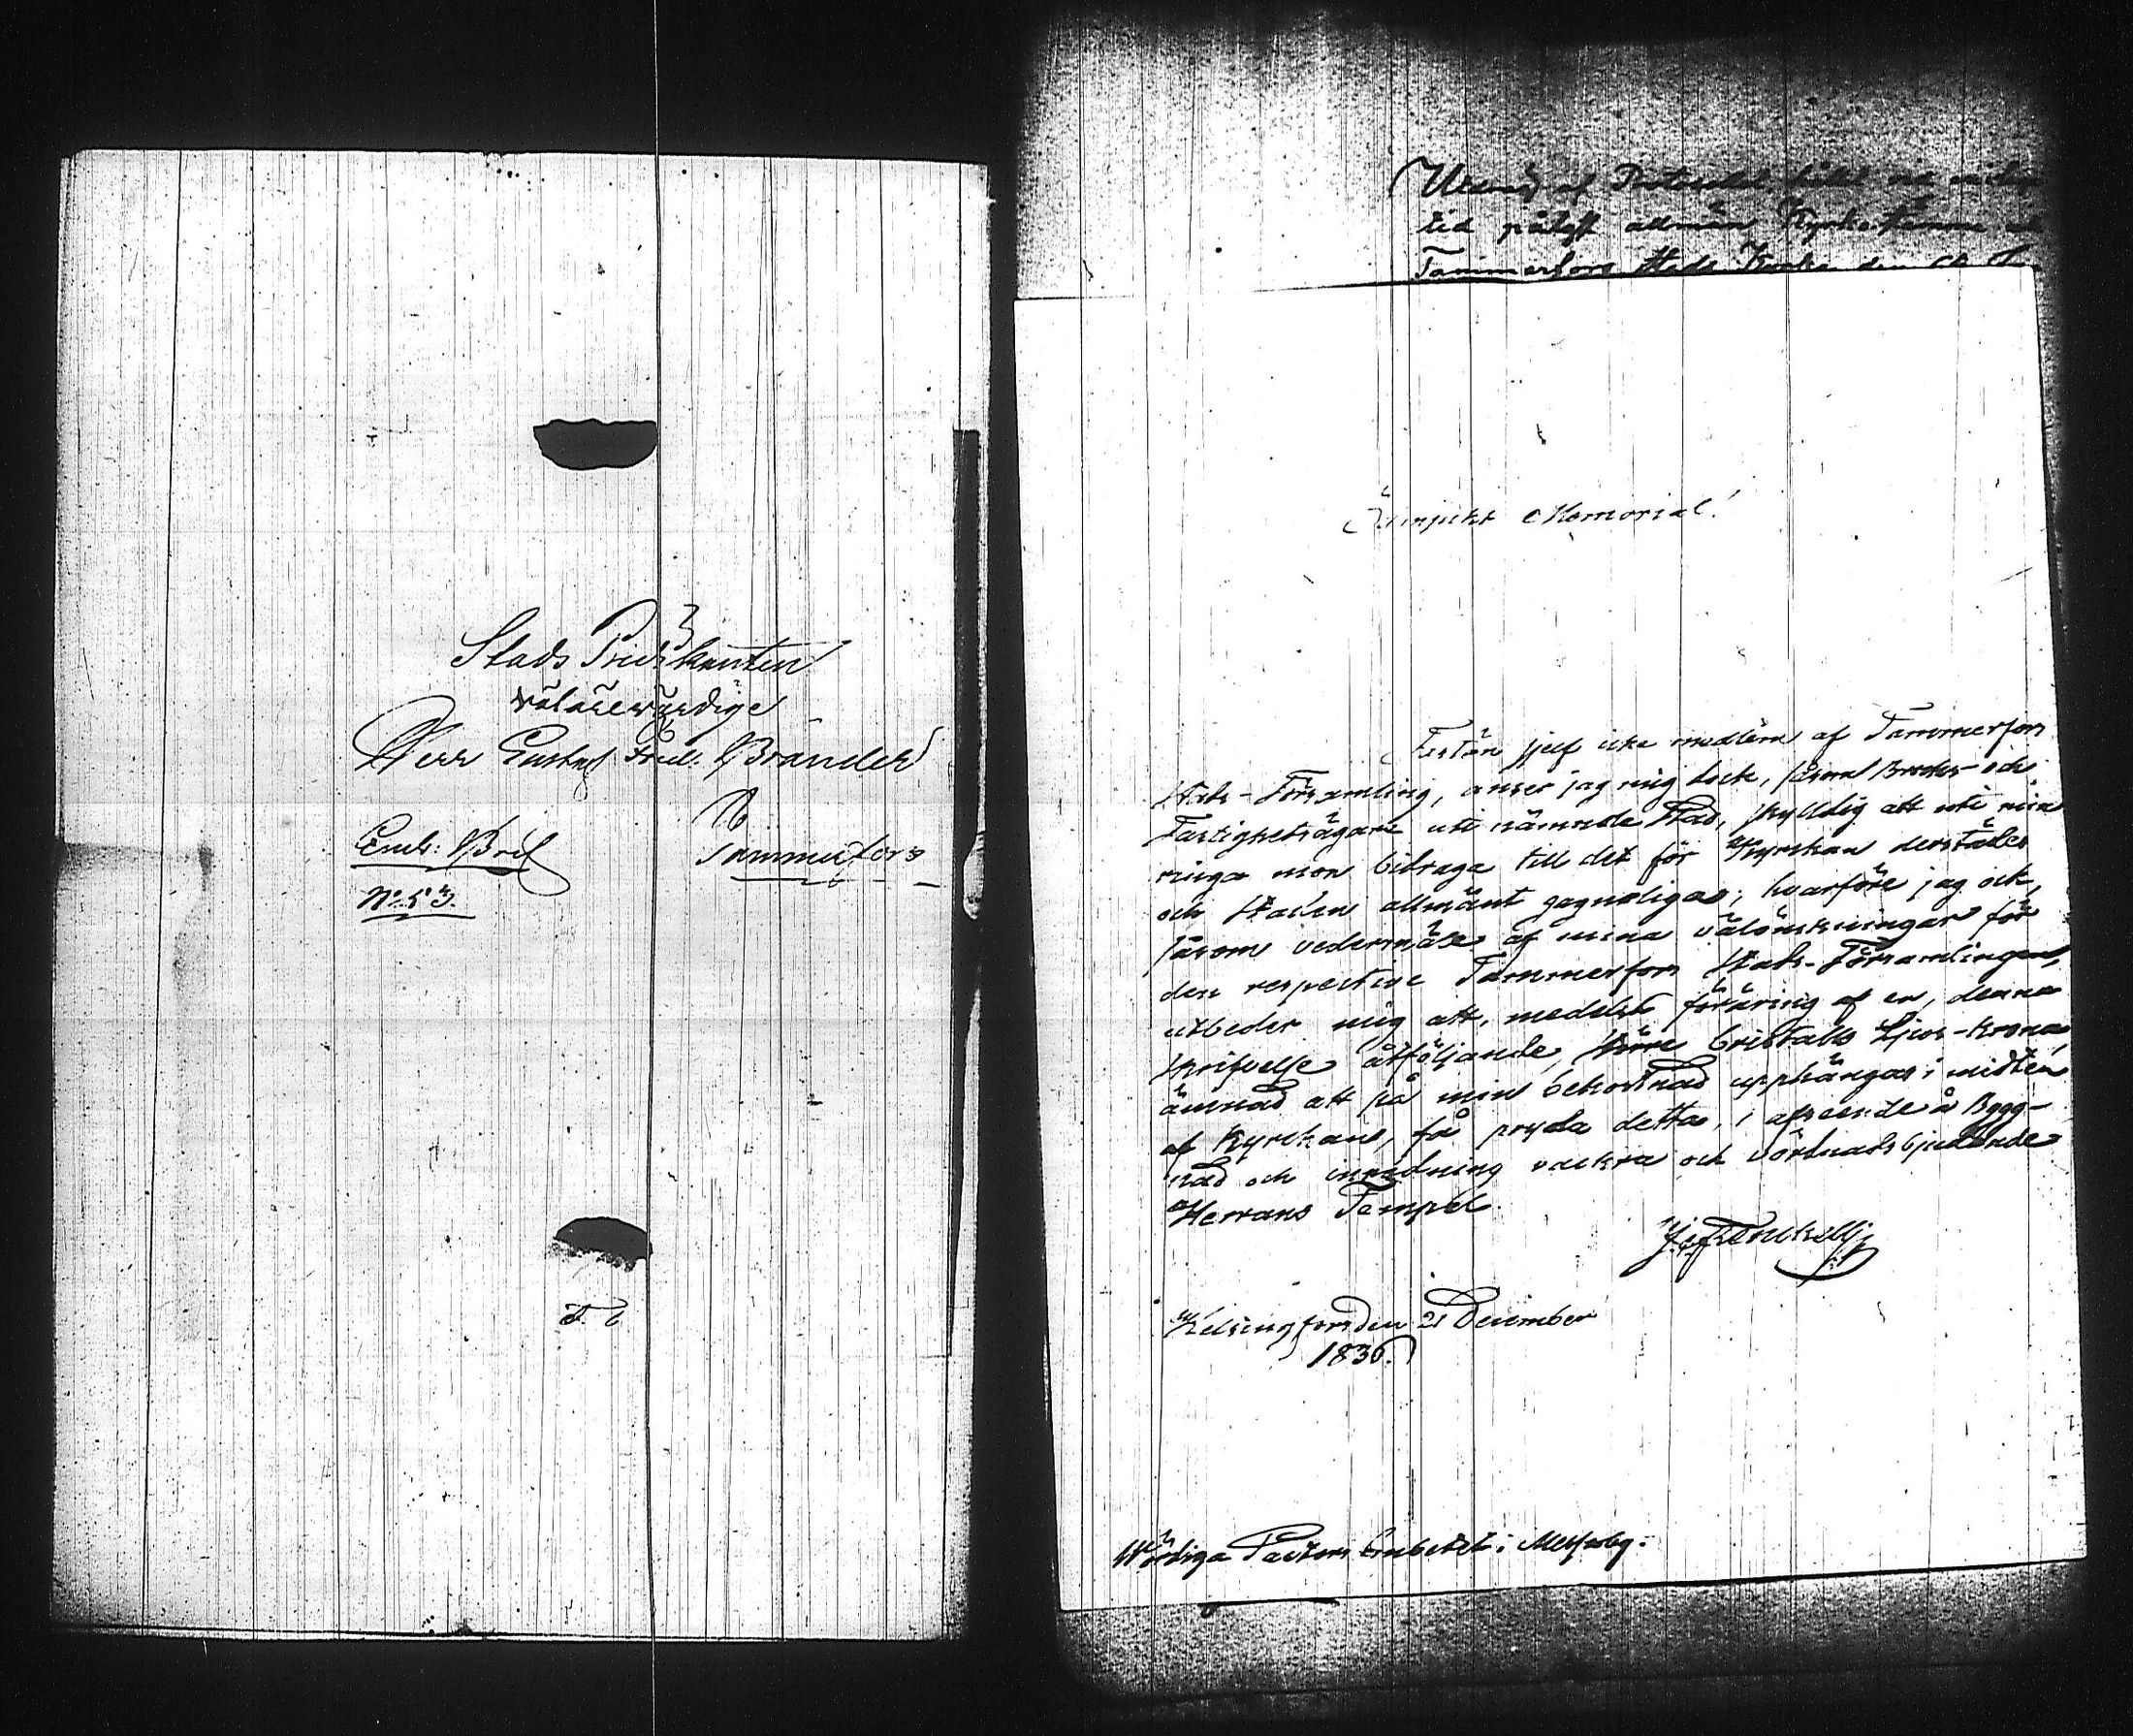 Stads Predikanten
välärewürdige
Herr Gustaf Fred. Brander
Emb: Bref
Tammerfors
No 53.
Utdrag af Protocollet hållet vid
tid pålyst allmän Kyrko stämma
Tammerfors Stads Kyrka den
Ödmjukt Memorial!
Ehuru sjelf icke medlem af Tammerfors
Stads-Församling, anser jag mig dock, såsom Bruks- och
Fastighetsägare uti nämnde Stad, skyldig att uti min
ringa mon bidraga till det för Kyrckan derstädes
och Staden allmänt gagneliga; hvarföre jag ock,
såsom vedermäle af mina välönskningar för
den respective Tammerfors Stads-Församlingen,
utbeder mig att, medelst föräring af en, denna
skrifvelse åtföljande, större Cristalls Ljus-krona,
ämnad att på min bekostnad upphängas i midten
af Kyrckan, få pryda detta, i afseende å Bygg-
nad och inredning vackra och vördnadsbjudande
Herrans Tempel.
Helsingfors den 21 December
1836.
Wördiga Pastors Embetet i Messuby: